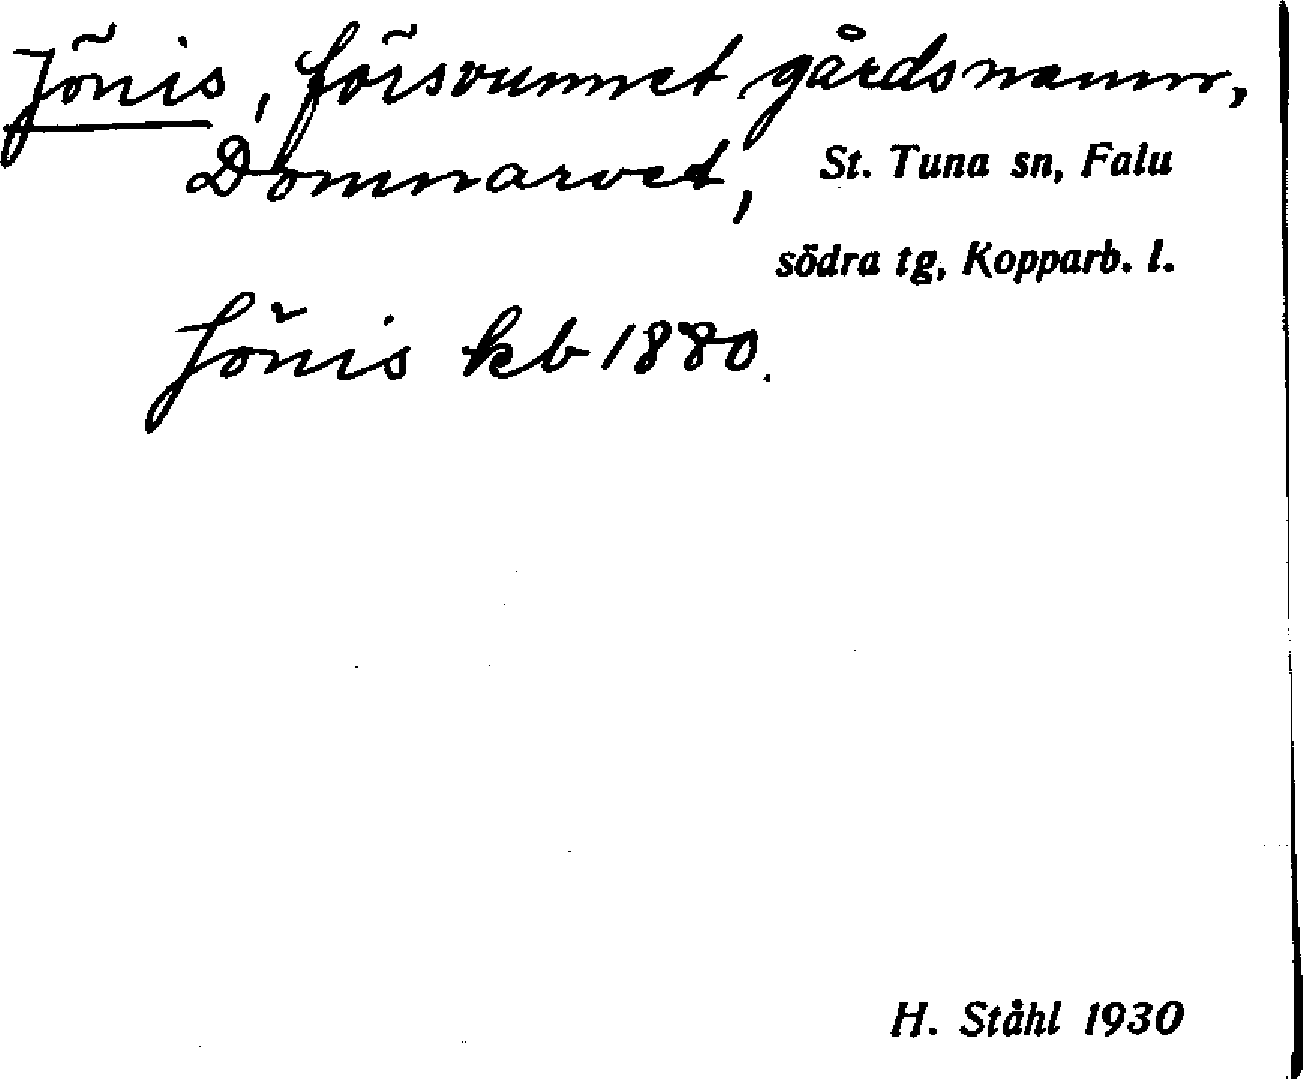 Jönis, försvunnet gårdsnamn,
Domnarvet, St. Tuna sn, Falu
södra tg, Kopparb. l.
Jönis kb 1880.
H. Ståhl 1930